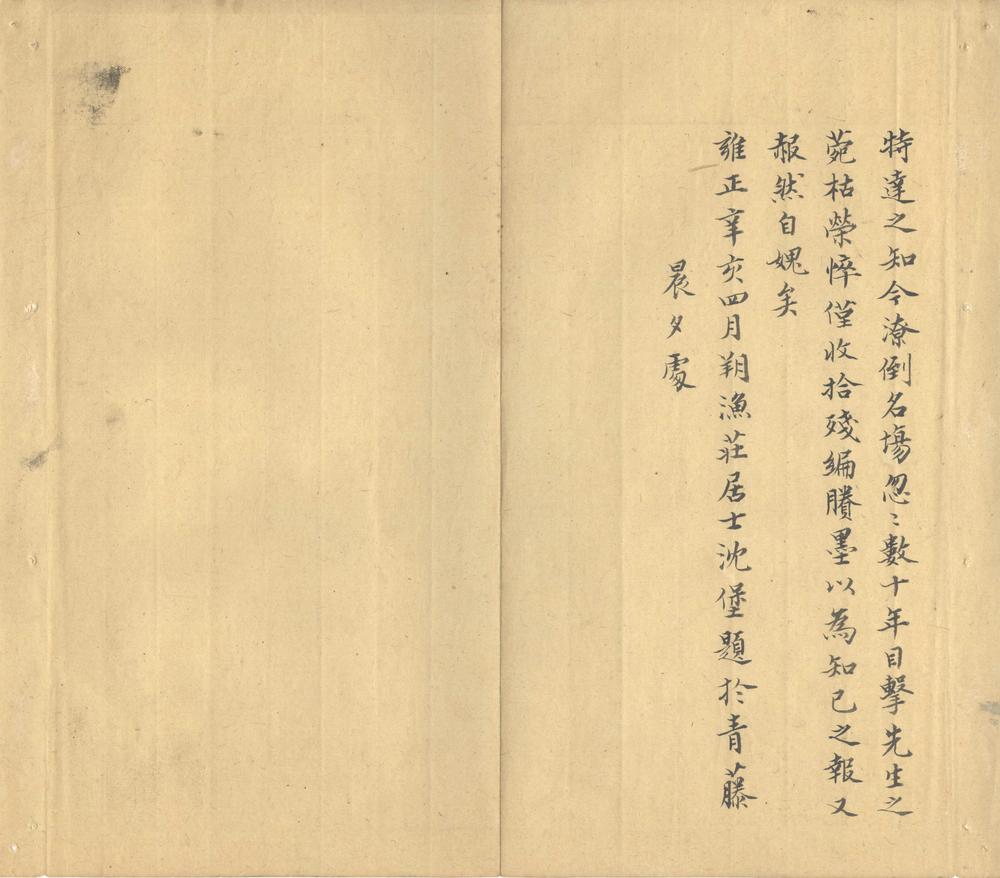 特達之知今潦倒名場忽〻數十年目擊先生之
菀枯榮悴僅收拾殘編賸墨以為知已之報又
赧然自媿矣
雍正辛亥四月朔漁莊居士沈堡題於青藤
晨夕處